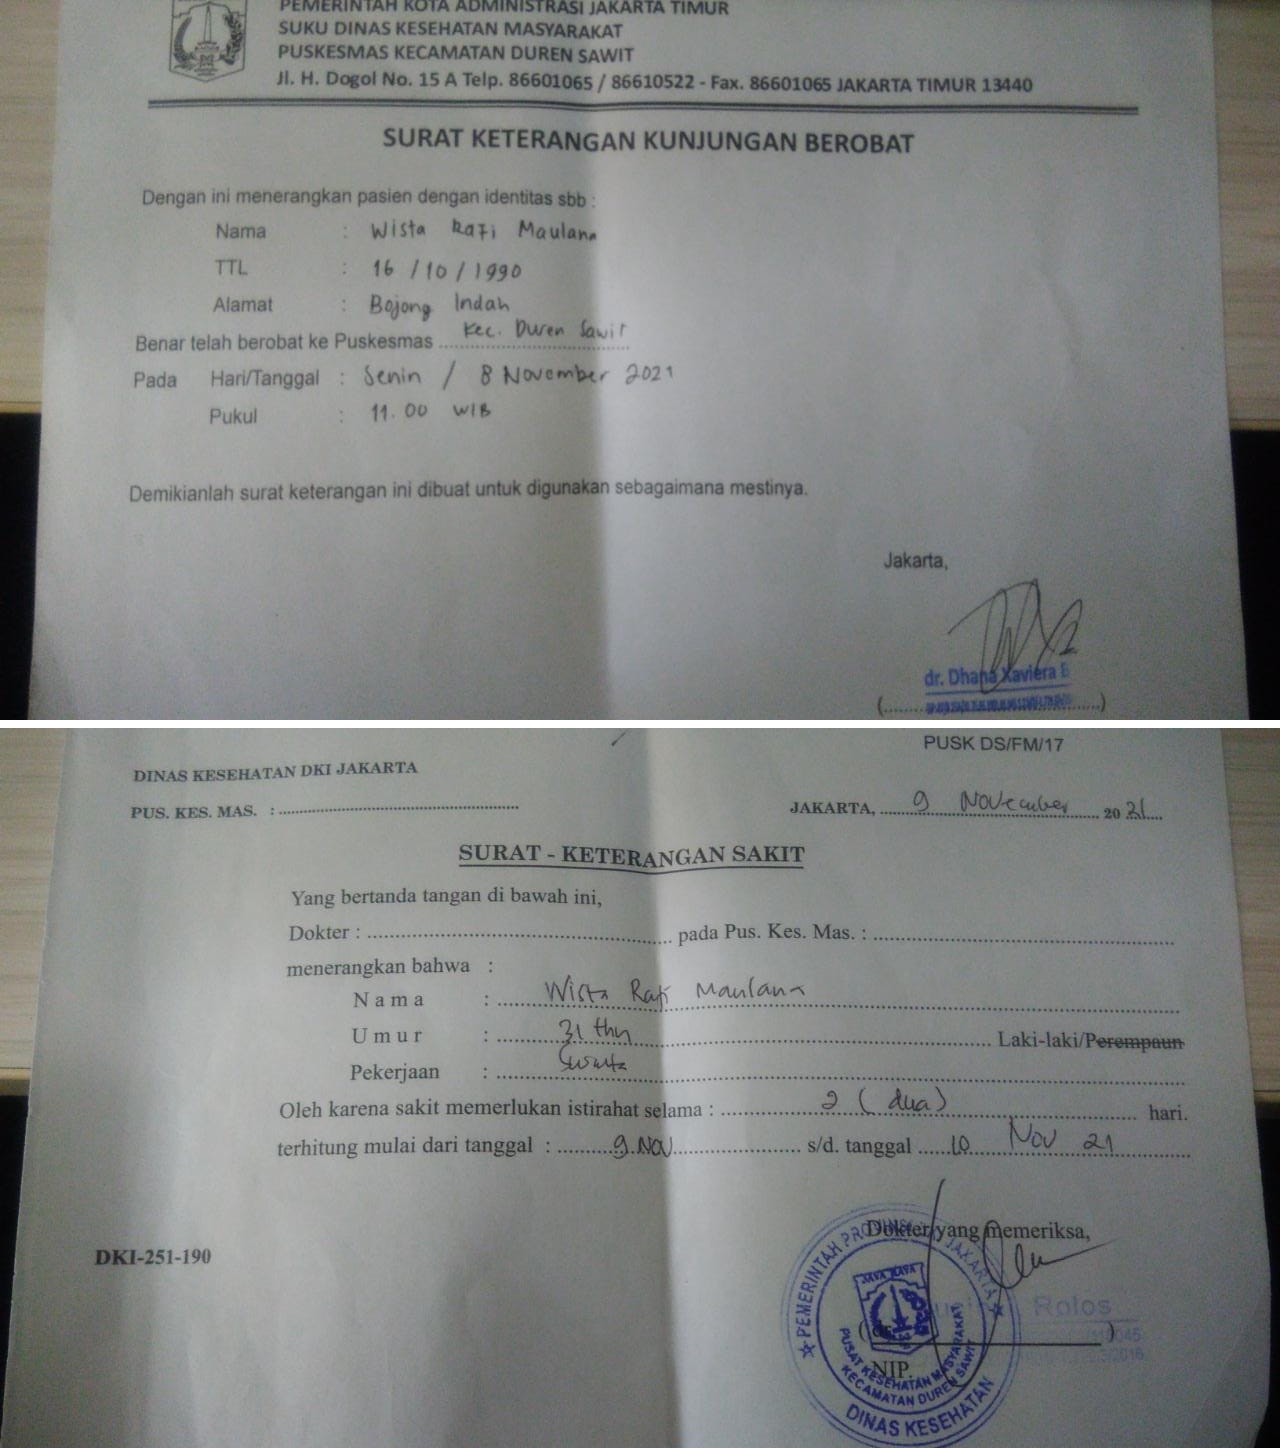 PEMERINTAH KOTA ADMINISTRASI JAKARTA TIMUR
SUKU DINAS KESEHATAN MASYARAKAT
PUSKESMAS KECAMATAN DUREN SAWIT
Jl. H. Dogol No. 15 A Telp. 86601065 / 86610522 - Fax. 86601065 JAKARTA TIMUR 13440
SURAT KETERANGAN KUNJUNGAN BEROBAT
Dengan ini menerangkan pasien dengan identitas sbb :
Nama : Wista Rafi Maulana
TTL : 16 / 10 / 1990
Alamat : Bojong Indah
Benar telah berobat ke Puskesmas Kec. Duren Sawit
Pada Hari/Tanggal : Senin / 8 November 2021
Pukul : 11.00 WIB
Demikianlah surat keterangan ini dibuat untuk digunakan sebagaimana mestinya.
Jakarta,
dr. Dhana Xaviera B
(..............................)
PUSK DS/FM/17
DINAS KESEHATAN DKI JAKARTA
PUS. KES. MAS. : ..............................
JAKARTA, 9 November 2021
SURAT - KETERANGAN SAKIT
Yang bertanda tangan di bawah ini,
Dokter : .............................. pada Pus. Kes. Mas. : ..............................
menerangkan bahwa :
Nama : Wista Rafi Maulana
Umur : 31 thn Laki-laki/Perempaun
Pekerjaan : Swasta
Oleh karena sakit memerlukan istirahat selama : 2 (dua) hari.
terhitung mulai dari tanggal : 9 Nov s/d. tanggal 10 Nov 21
Dokter yang memeriksa,
DKI-251-190
PEMERINTAH PROVINSI JAKARTA
JAYA RAYA
Rolos
PUSAT KESEHATAN MASYARAKAT
KECAMATAN DUREN SAWIT
NIP.
DINAS KESEHATAN